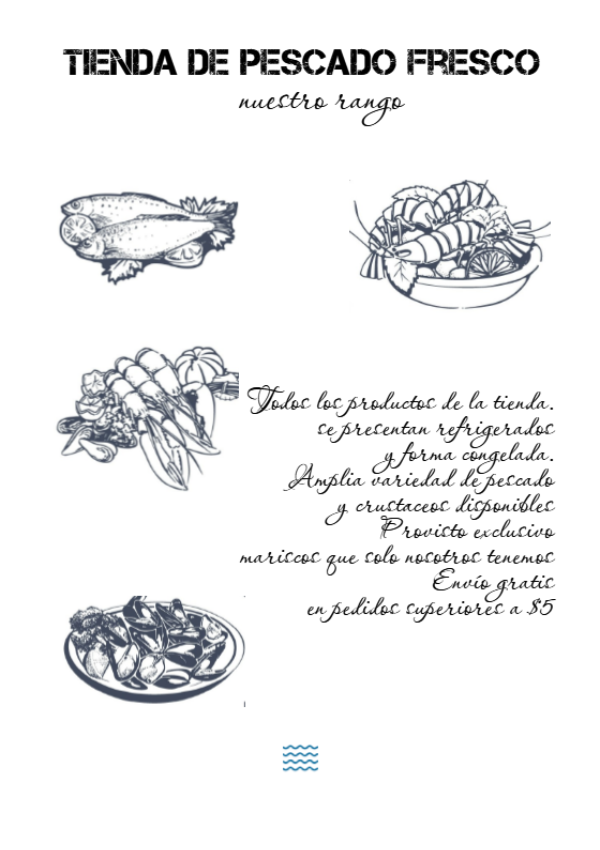 TIENDA DE PESCADO FRESCO
nuestro rango
Todos los productos de la tienda.
se presentan refrigerados
y forma congelada.
Amplia variedad de pescado
y crustaceos disponibles
Provisto exclusivo
mariscos que solo nosotros tenemos
Envío gratis
en pedidos superiores a $5